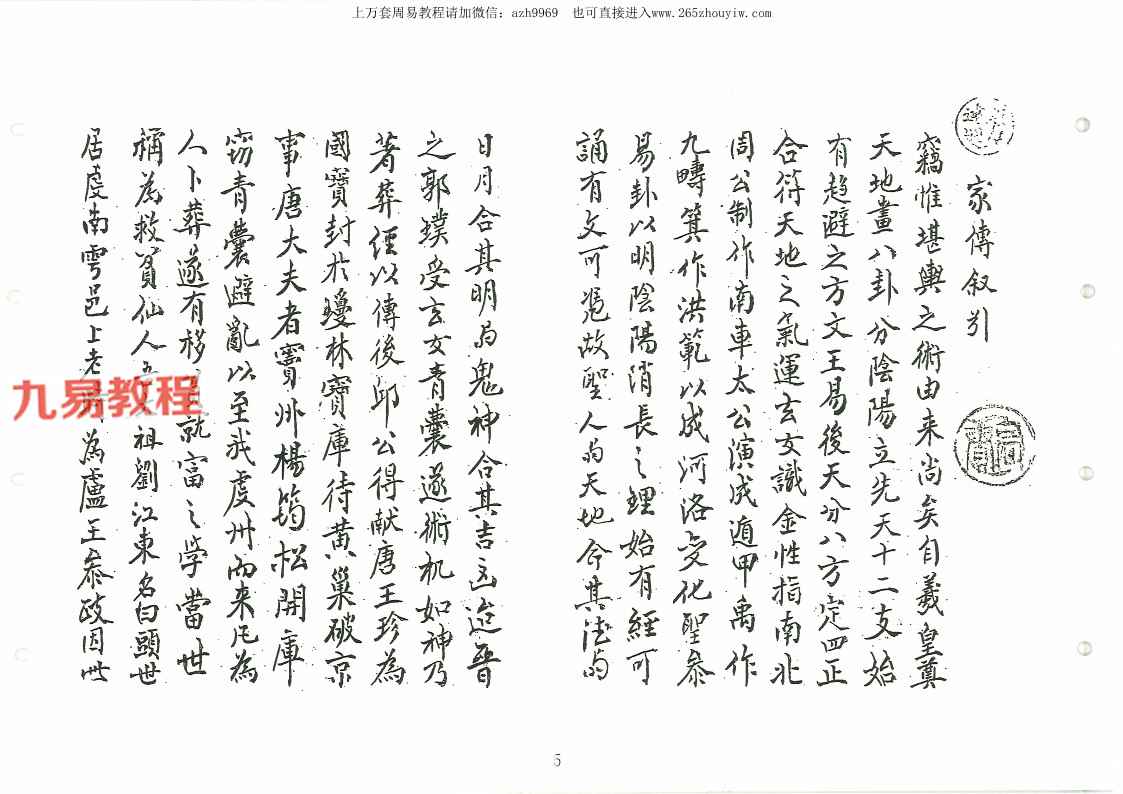 上万套周易教程请加微信: azh9969 也可直接进入www.265zhouyiw.com
家傳叙引
竊惟堪輿之術由来尚矣自羲皇奠
天地畫八卦分陰陽立先天十二支始
有趋避之方文王易後天分八方定四正
合符天地之氣運玄女識金性指南北
周公制作南車太公演成遁甲禹作
九疇箕作洪範以成河洛变化聖叅
易卦以明陰陽消長之理始有經可
誦有文可凭故聖人与天地合其德与
日月合其明与鬼神合其吉凶迨晋
之郭璞受玄女青囊遂術机如神乃
著葬經以傳後邱公得献唐王珍為
國寶封於瓊林寶庫待黄巢破京
事唐大夫者竇州楊筠松開庫
窃青囊避亂以至我虔州而来凡為
人卜葬遂有移就富之學當世
稱為救貧仙人祖劉江東名白頭世
居虔南雩邑上老為盧王叅政因世
九易教程
5